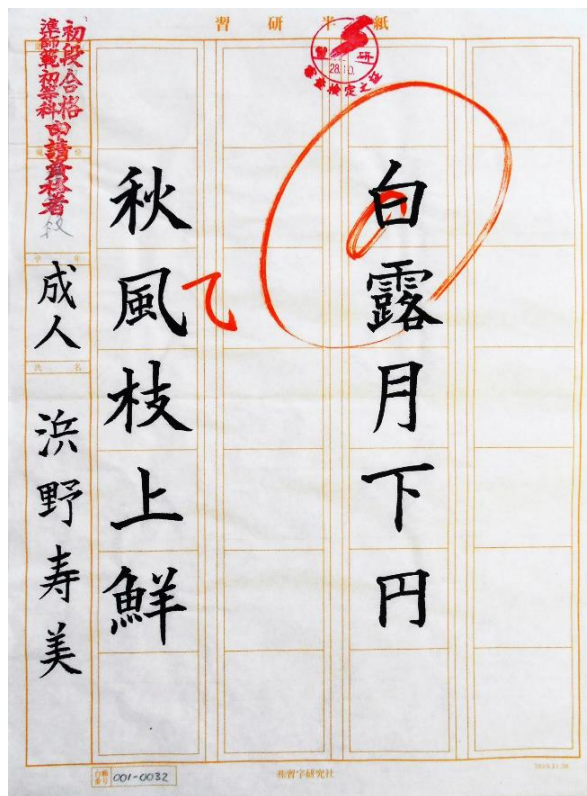 習研半紙
研
28.10.
審査検定之証
白露月下円
秋風枝上鮮
初段合格
準師範初等科申請資格者
段
成人
氏名
浜野寿美
001-0032
㈱習字研究社